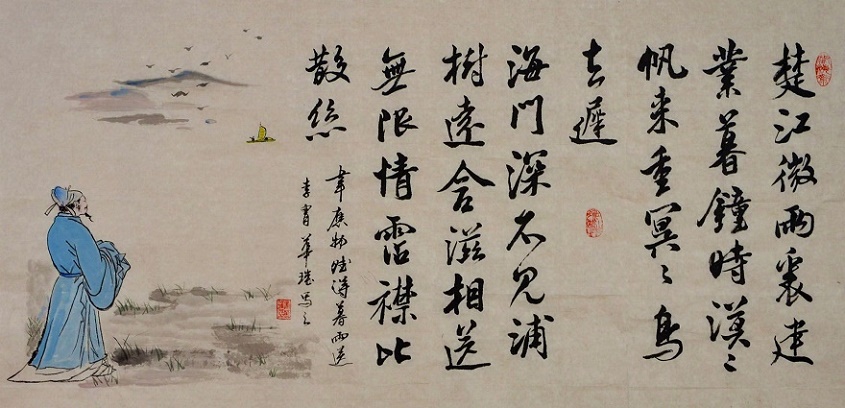 楚江微雨裏建
業暮鐘時漠〻
帆来重冥〻鳥
去遲
海門深不見浦
樹遠含滋相送
無限情霑襟比
散絲
韋應物賦得暮雨送
李胄華